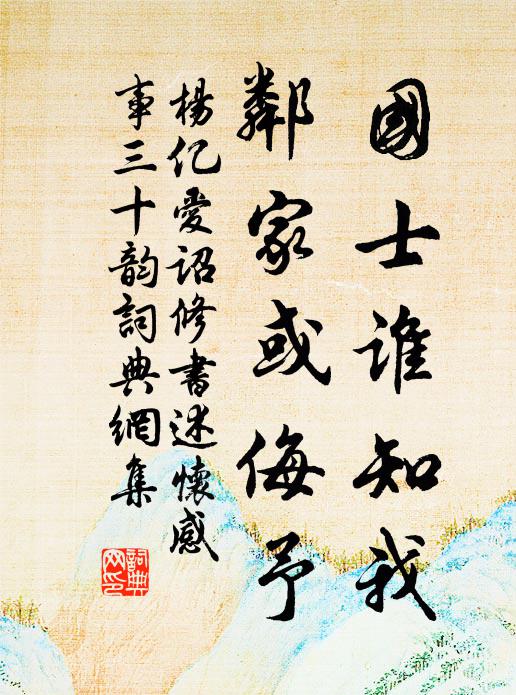 國士誰知我
鄰家或侮予
楊亿愛詔修書述懷感
事三十韵詞典網集
詞典
网印